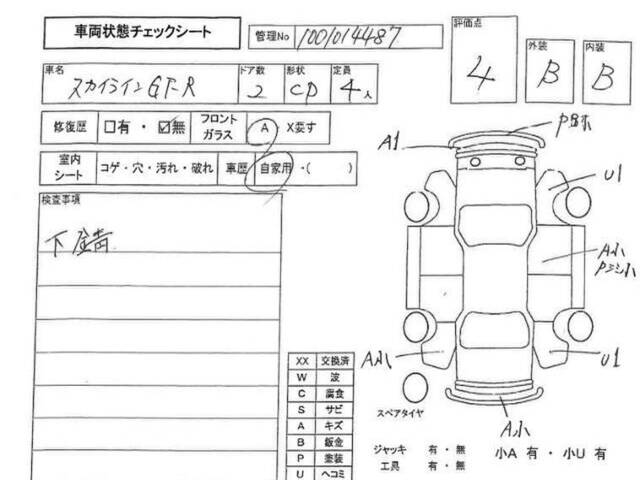 車両状態チェックシート
管理No 1001014487
評価点 4
外装 B
内装 B
車名 スカイラインGT-R
ドア数 2
形状 CP
定員 4人
修復歴 □有・☑無
フロントガラス A・X要す
室内シート コゲ・穴・汚れ・破れ
車歴 自家用・( )
検査事項
下錆
A1
U1
A小
Pミシ小
A小
U1
A小
スペアタイヤ
XX 交換済
W 波
C 腐食
S サビ
A キズ
B 鈑金
P 塗装
U ヘコミ
ジャッキ 有・無
工具 有・無
小A 有・小U 有